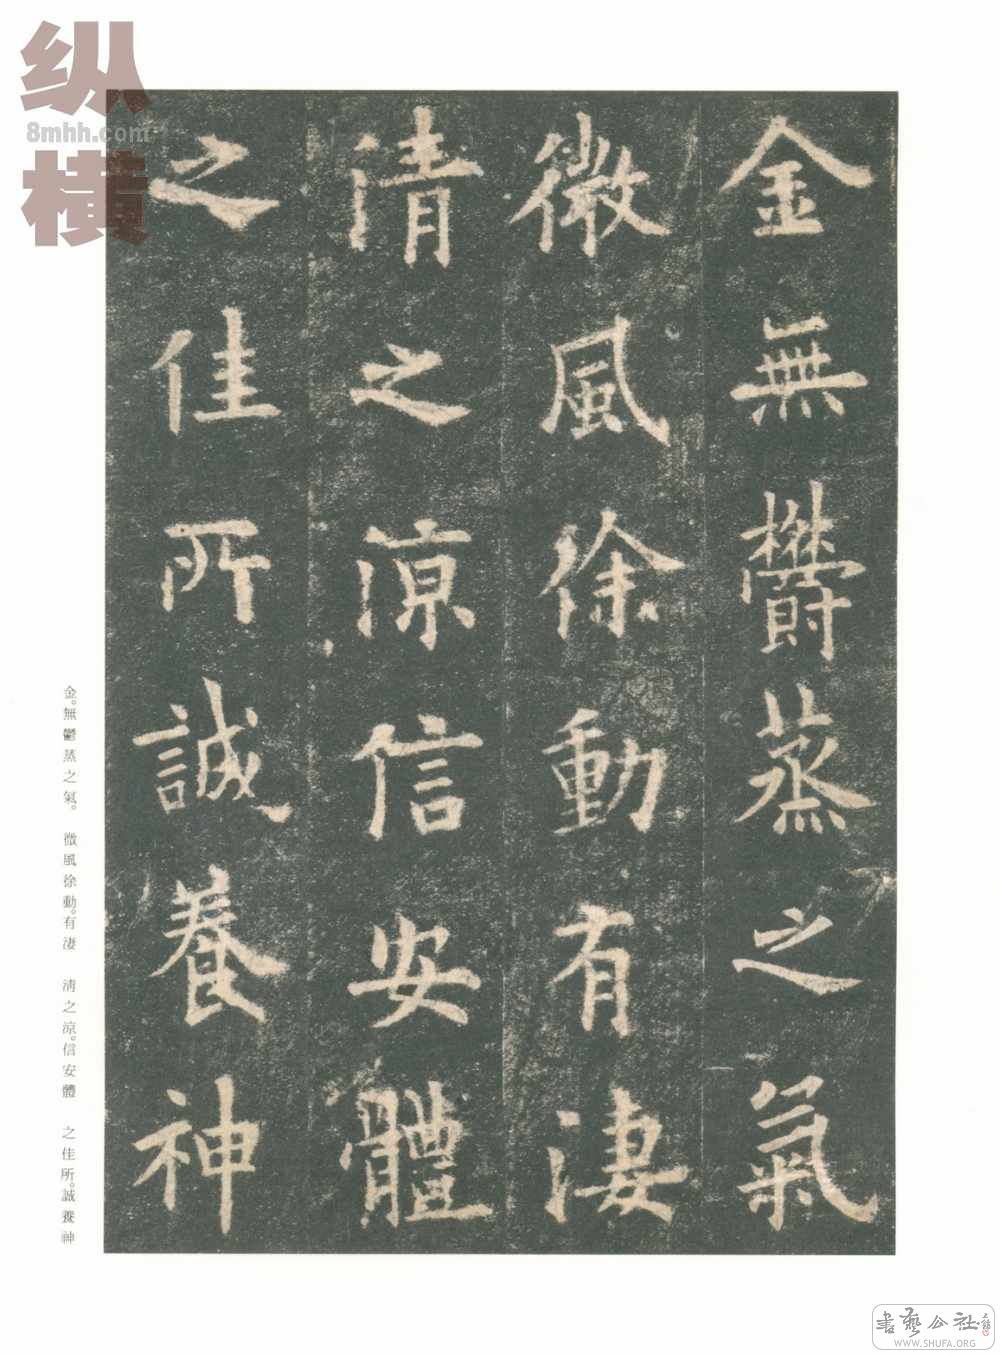 金無欝蒸之氣
微風徐動有淒
清之涼信安體
之佳所誠養神
金。無鬱蒸之氣。 微風徐動。有淒 清之涼。信安體 之佳所。誠養神
纵
8mhh.com
横
書藝公社
WWW.SHUFA.ORG